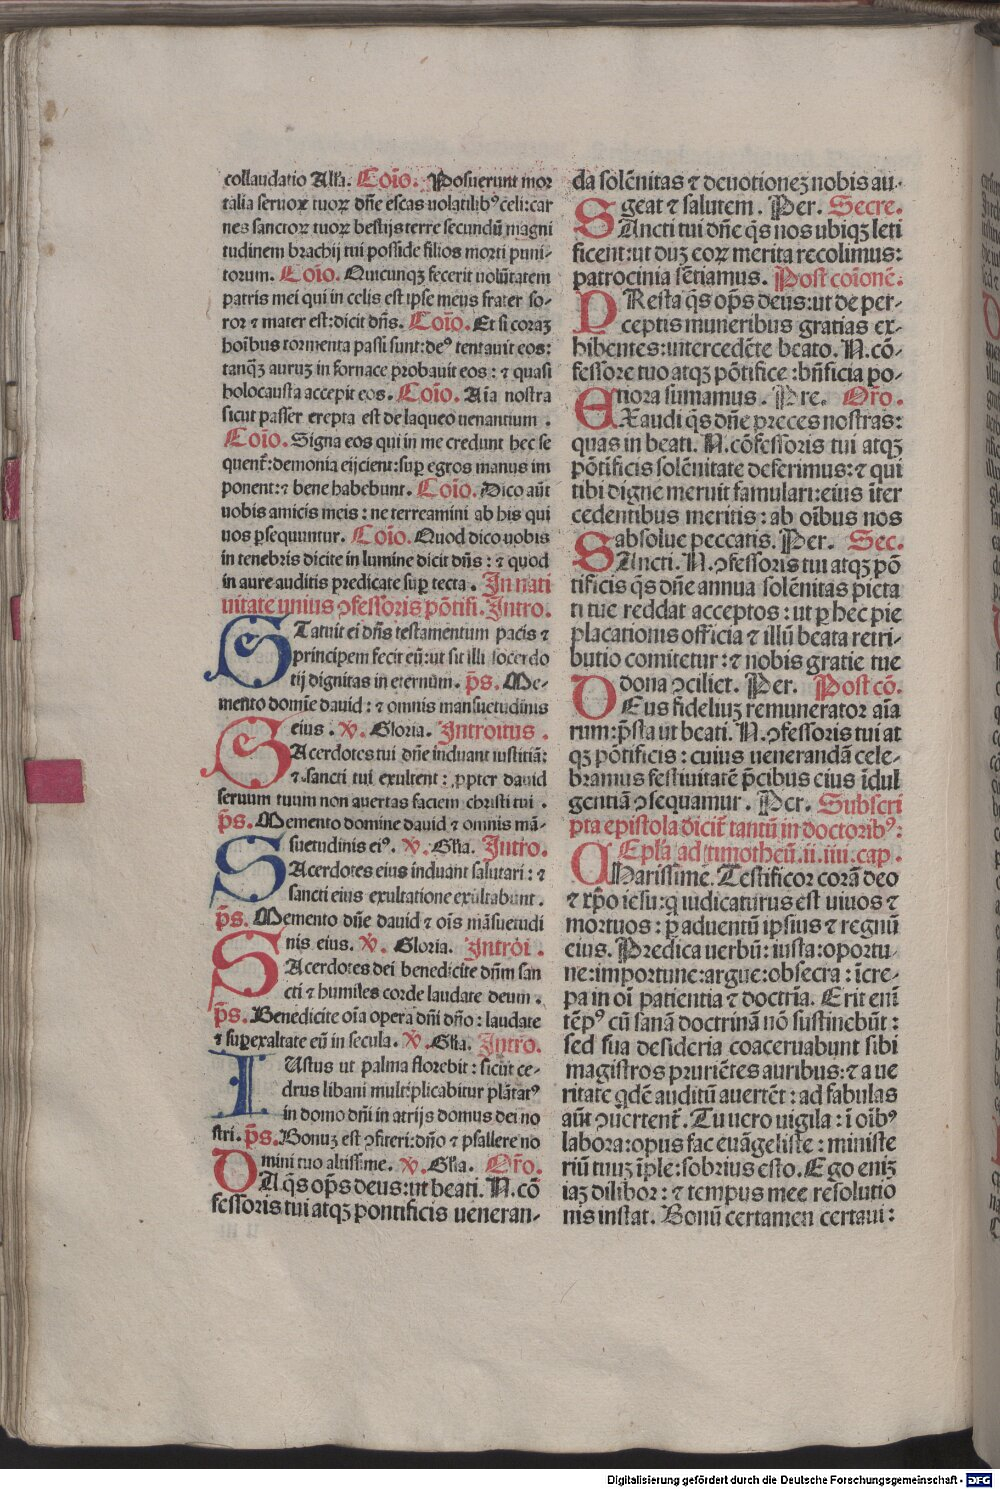 collaudatio Alľa. Coi̅o. Posuerunt mor
talia seruoꝝ tuoꝝ dn̅e escas uolatilibꝰ celi:car
nes sanctoꝝ tuoꝝ bestijs terre secundu̅ magni
tudinem brachij tui posside filios morti puni-
torum. Coi̅o. Quicunqꝫ fecerit uolu̅tatem
patris mei qui in celis est ipse meus frater so-
ror ⁊ mater est:dicit dn̅s. Coi̅o. Et si coraꝫ
hoi̅bus tormenta passi sunt:deꝰ tentauit eos:
tanqꝫ auruꝫ in fornace probauit eos: ⁊ quasi
holocausta accepit eos. Coi̅o. Ai̅a nostra
sicut passer erepta est de laqueo uenantium.
Coi̅o. Signa eos qui in me credunt hec se
quent̃:demonia eijcient:suꝑ egros manus im
ponent:⁊ bene habebunt. Coi̅o. Dico au̅t
uobis amicis meis: ne terreamini ab his qui
uos ꝑsequuntur. Coi̅o. Quod dico uobis
in tenebris dicite in lumine dicit dn̅s: ⁊ quod
in aure auditis predicate suꝑ tecta. In nati
uitate unius ꝯfessoris po̅tifi. Intro.
STatuit ei dn̅s testamentum pacis ⁊
principem fecit eu̅:ut sit illi socerdo
tij dignitas in eternu̅m. p̅s. Me-
mento domi̅e dauid: ⁊ omnis mansuetudinis
eius. v̅. Gloria. Introitus.
SAcerdotes tui dn̅e induant iustitia̅:
⁊ sancti tui exultent: ꝓpter dauid
seruum tuum non auertas faciem christi tui.
p̅s. Memento domine dauid ⁊ omnis ma̅-
suetudinis eiꝰ. v̅. Gľia. Intro.
SAcerdotes eius induant salutari: ⁊
sancti eius exultatione exultabunt.
p̅s. Memento dn̅e dauid ⁊ oi̅s ma̅suetudi
nis eius. v̅. Gloria. Introi.
SAcerdotes dei benedicite dn̅m san
cti ⁊ humiles corde laudate deum.
p̅s. Benedicite oi̅a opera dn̅i dn̅o: laudate
⁊ suꝑexaltate eu̅ in secula. v̅. Gľia. Intro.
IUstus ut palma florebit: sicut ce-
drus libani multiplicabitur pla̅tatꝰ
in domo dn̅i in atrijs domus dei no
stri. p̅s. Bonuꝫ est ꝯfiteri:dn̅o ⁊ psallere no
mini tuo altissime. v̅. Gľia. Or̅o.
DA q̅s op̅s deus:ut beati. N. co̅
fessoris tui atqꝫ pontificis ueneran-
da sole̅nitas ⁊ deuotioneꝫ nobis au-
geat ⁊ salutem. Per. Secre.
SAncti tui dn̅e q̅s nos ubiqꝫ leti
ficent:ut duꝫ eoꝝ merita recolimus:
patrocinia se̅tiamus. Post coi̅one̅.
PResta q̅s op̅s deus:ut de per-
ceptis muneribus gratias ex-
hibentes:intercede̅te beato. N. co̅-
fessore tuo atqꝫ po̅tifice:bn̅ficia po-
tiora sumamus. Pre. Or̅o.
EXaudi q̅s dn̅e preces nostras:
quas in beati. N. co̅fessoris tui atqꝫ
po̅tificis sole̅nitate deferimus:⁊ qui
tibi digne meruit famulari:eius i̅ter
cedentibus meritis: ab oi̅bus nos
absolue peccatis. Per. Sec.
SAncti. N. ꝯfessoris tui atqꝫ po̅
tificis q̅s dn̅e annua sole̅nitas pieta
ti tue reddat acceptos: ut ꝑ hec pie
placationis officia ⁊ illu̅ beata retri-
butio comitetur: ⁊ nobis gratie tue
dona ꝯciliet. Per. Post co̅.
DEus fideliuꝫ remunerator ai̅a
rum:p̅sta ut beati. N. ꝯfessoris tui at
qꝫ po̅tificis: cuius ueneranda̅ cele-
bramus festiuitate̅ p̅cibus eius i̅dul
gentia̅ ꝯsequamur. Per. Subscri
pta epistola dicit̃ tantu̅ in doctoribꝰ:
Epľa ad timotheu̅.ii.iiii.cap.
CHarissime. Testificor cora̅ deo
⁊ xp̅o iesu:q iudicaturus est uiuos ⁊
mortuos: ꝑ aduentu̅ ipsius ⁊ regnu̅
eius. Predica uerbu̅: insta:oportu-
ne:importune:argue:obsecra: i̅cre-
pa in oi̅ patientia ⁊ doctri̅a. Erit eni̅
te̅pꝰ cu̅ sana̅ doctrina̅ no̅ sustinebu̅t:
sed sua desideria coaceruabunt sibi
magistros prurie̅tes auribus:⁊ a ue
ritate qde̅ auditu̅ auerte̅t: ad fabulas
au̅t ꝯuertent̃. Tu uero uigila: i̅ oi̅bꝰ
labora:opus fac eua̅geliste: ministe
riu̅ tuuꝫ i̅ple:sobrius esto. Ego eniꝫ
iaꝫ dilibor: ⁊ tempus mee resolutio
nis instat. Bonu̅ certamen certaui:
Digitalisierung gefördert durch die Deutsche Forschungsgemeinschaft - DFG